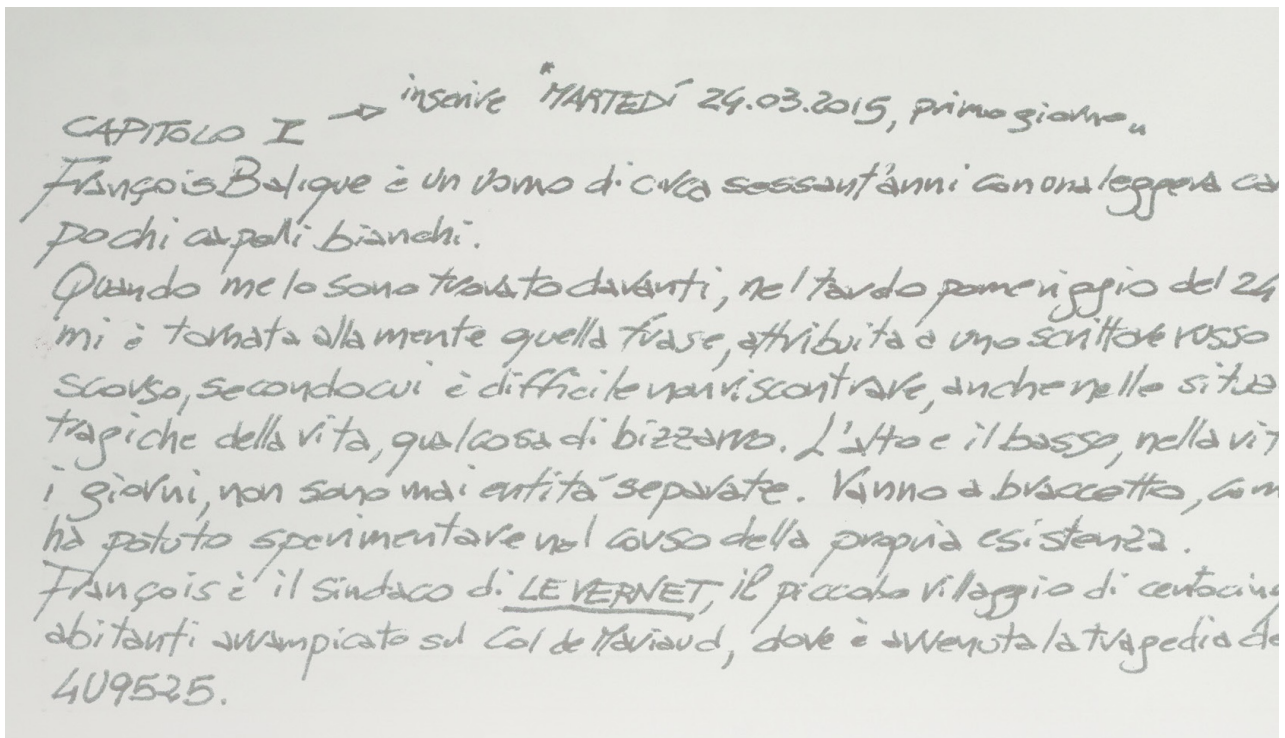 CAPITOLO I → inserire "MARTEDÍ 24.03.2015, primo giorno"
François Balique è un uomo di circa sessant'anni con una leggera ca
pochi capelli bianchi.
Quando me lo sono trovato davanti, nel tardo pomeriggio del 24
mi è tornata alla mente quella frase, attribuita a uno scrittore russo
scorso, secondo cui è difficile non riscontrare, anche nelle situa
tragiche della vita, qualcosa di bizzarro. L'alto e il basso, nella vit
i giorni, non sono mai entità separate. Vanno a braccetto, com
ha potuto sperimentare nel corso della propria esistenza.
François è il sindaco di LE VERNET, il piccolo villaggio di centocinq
abitanti arrampicato sul Col de Mariaud, dove è avvenuta la tragedia de
4U9525.